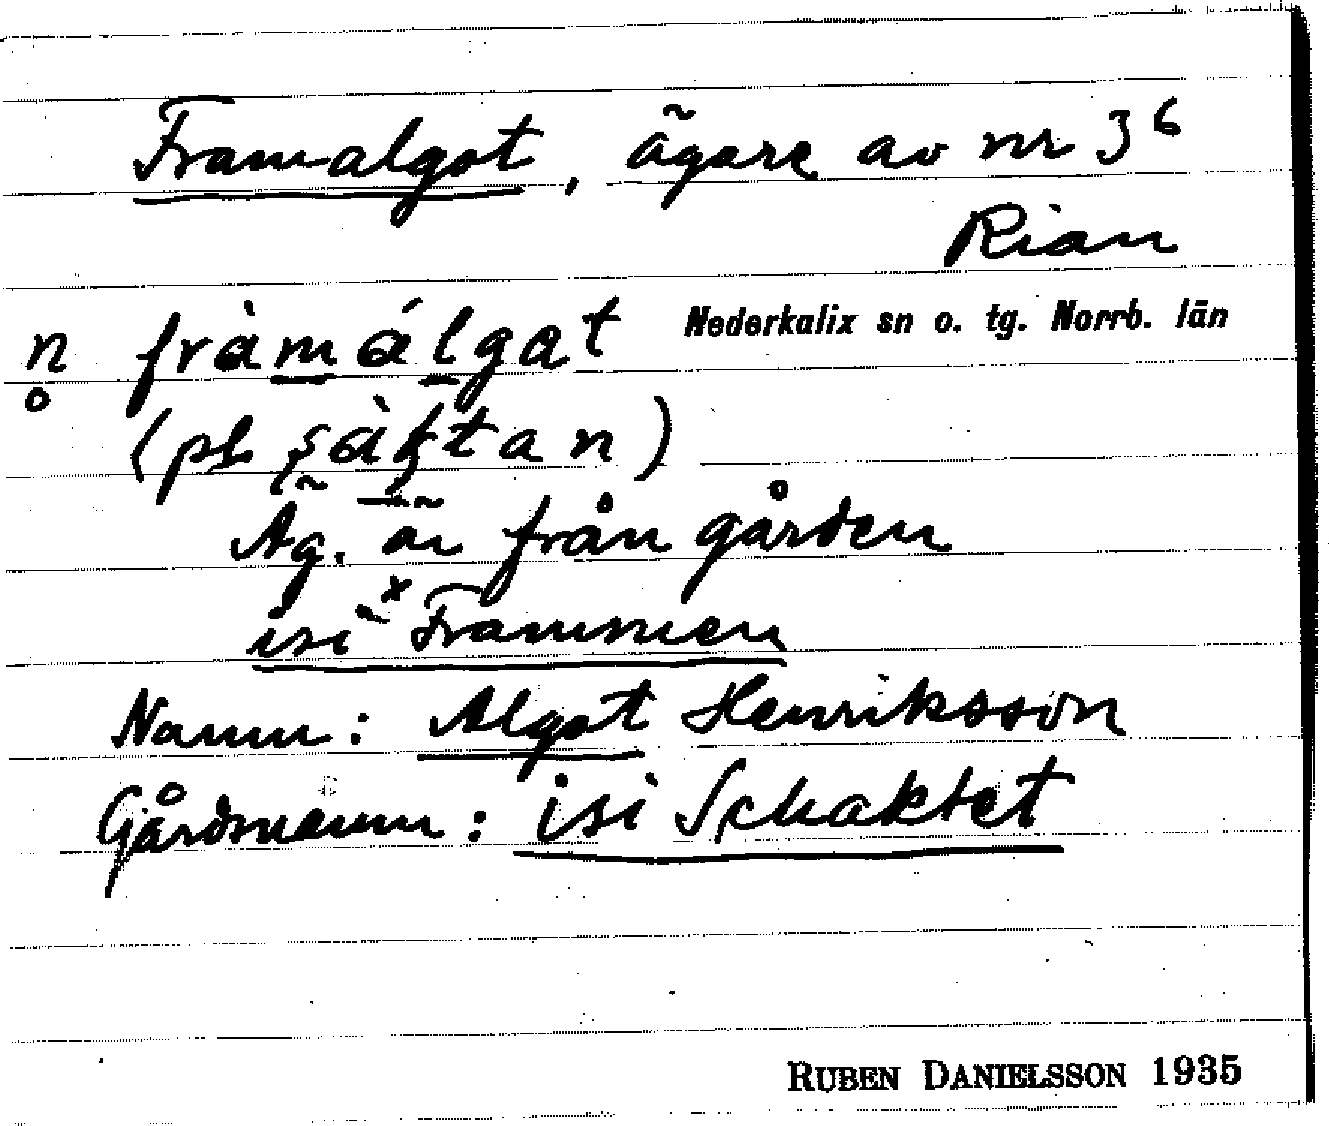 Framalgot, ägare av nr 3⁶
Rian
Nederkalix sn o. tg. Norrb. län
n̥ fràmálgat
(pl ṣàk̭tan)
Äg. är från gården
isi ˣFrammen
Namn: Algot Henriksson
Gårdsnamn: isi Schaktet
RUBEN DANIELSSON 1935